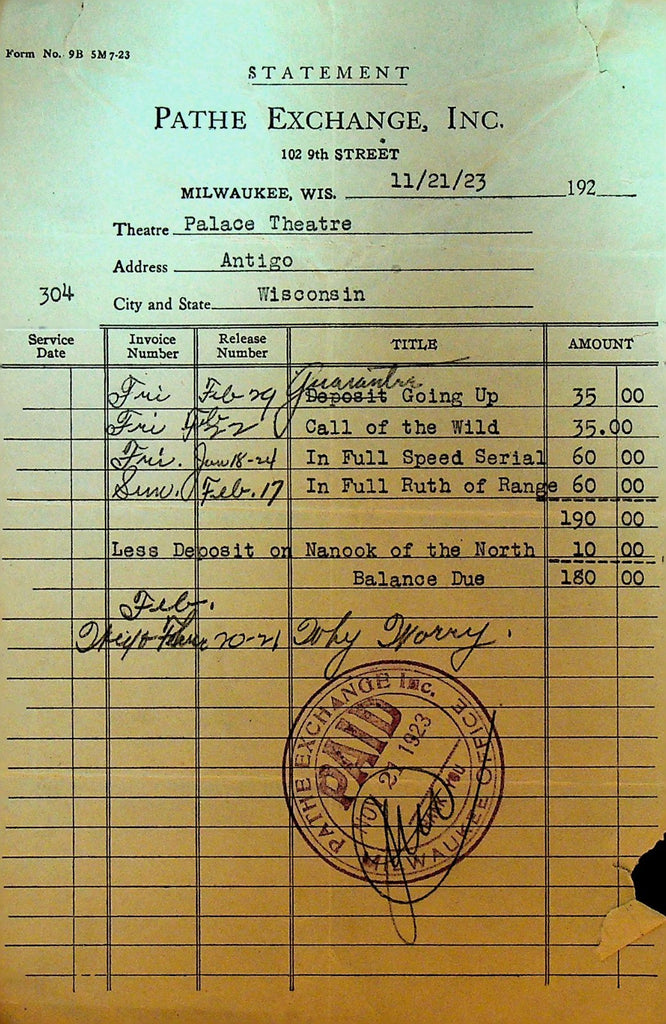 Form No. 9B 5M 7-23
STATEMENT
PATHE EXCHANGE, INC.
102 9th STREET
MILWAUKEE, WIS. 11/21/23 192
Theatre Palace Theatre
Address Antigo
304
City and State Wisconsin
Service Date Invoice Number Release Number TITLE AMOUNT
Guarantee
Fri Feb 29 Deposit Going Up 35 00
Fri Feb 22 Call of the Wild 35.00
Fri. Jan 18-24 In Full Speed Serial 60 00
Sun. Feb. 17 In Full Ruth of Range 60 00
190 00
Less Deposit on Nanook of the North 10 00
Balance Due 180 00
Feb.
20-21 Why Worry.
PATHE EXCHANGE Inc.
PAID
21 1923
THANK YOU
MILWAUKEE OFFICE